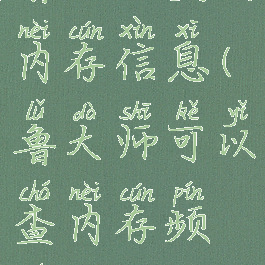 nèi cún xìn xī
内存信息(
lǔ dà shī kě yǐ
鲁大师可以
chá nèi cún pín
查内存频